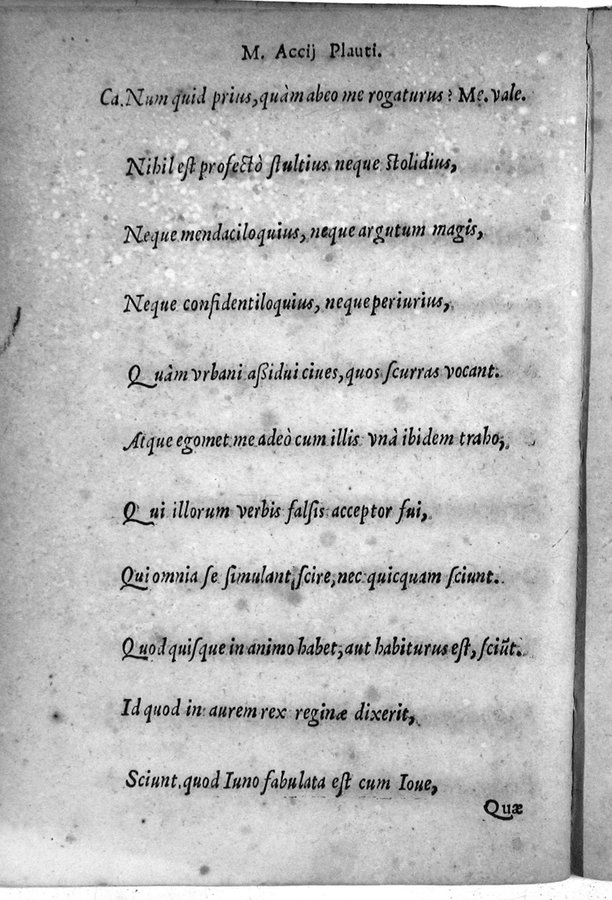 M. Accij Plauti.
Ca. Num quid prius, quàm abeo me rogaturus? Me. vale.
Nihil est profectò stultius neque stolidius,
Neque mendaciloquius, neque argutum magis,
Neque confidentiloquius, neque periurius,
Quàm vrbani aßidui ciues, quos scurras vocant.
Atque egomet me adeò cum illis vnà ibidem traho,
Qui illorum verbis falsis acceptor fui,
Qui omnia se simulant scire, nec quicquam sciunt.
Quod quisque in animo habet, aut habiturus est, sciũt.
Id quod in aurem rex reginæ dixerit,
Sciunt. quod Iuno fabulata est cum Ioue,
Quæ